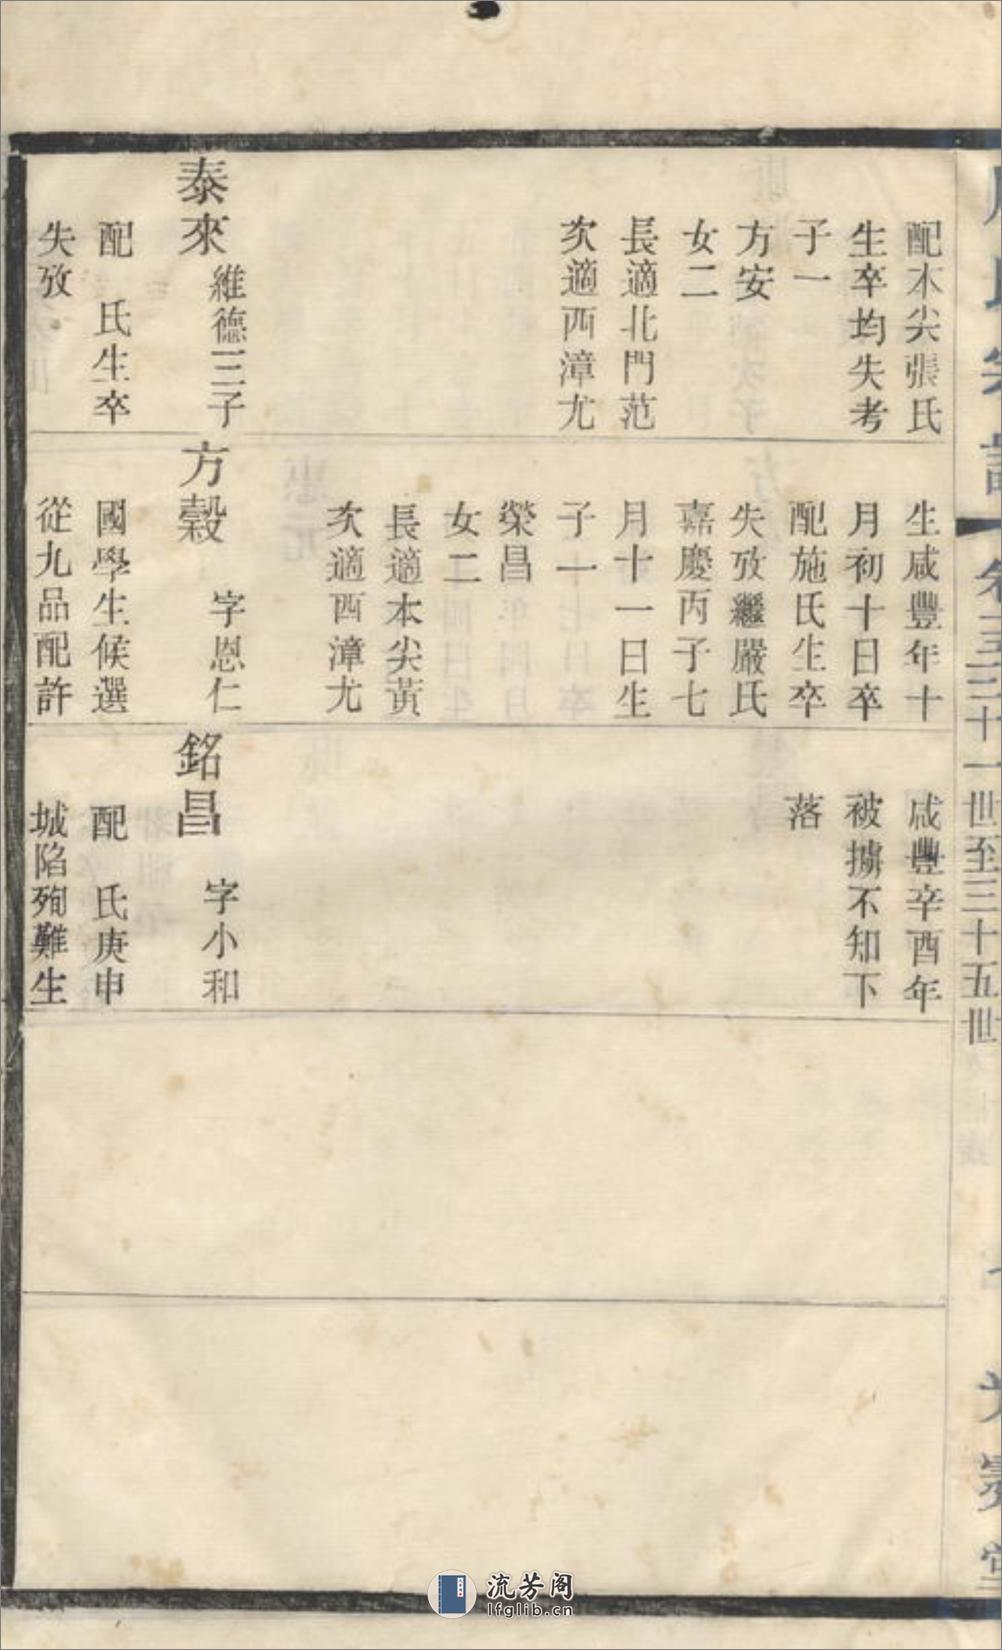 卷三三十一世至三十五世
配木尖張氏
生卒均失考
子一
方安
女二
長適北門范
次適西漳尤
泰來
維德三子
配　氏生卒
失攷
生咸豐年十
月初十日卒
配施氏生卒
失攷繼嚴氏
嘉慶丙子七
月十一日生
子一
榮昌
女二
長適本尖黃
次適西漳尤
方穀
字恩仁
國學生候選
從九品配許
咸豐辛酉年
被擄不知下
落
銘昌
字小和
配　氏庚申
城陷殉難生
流芳阁
lfglib.cn